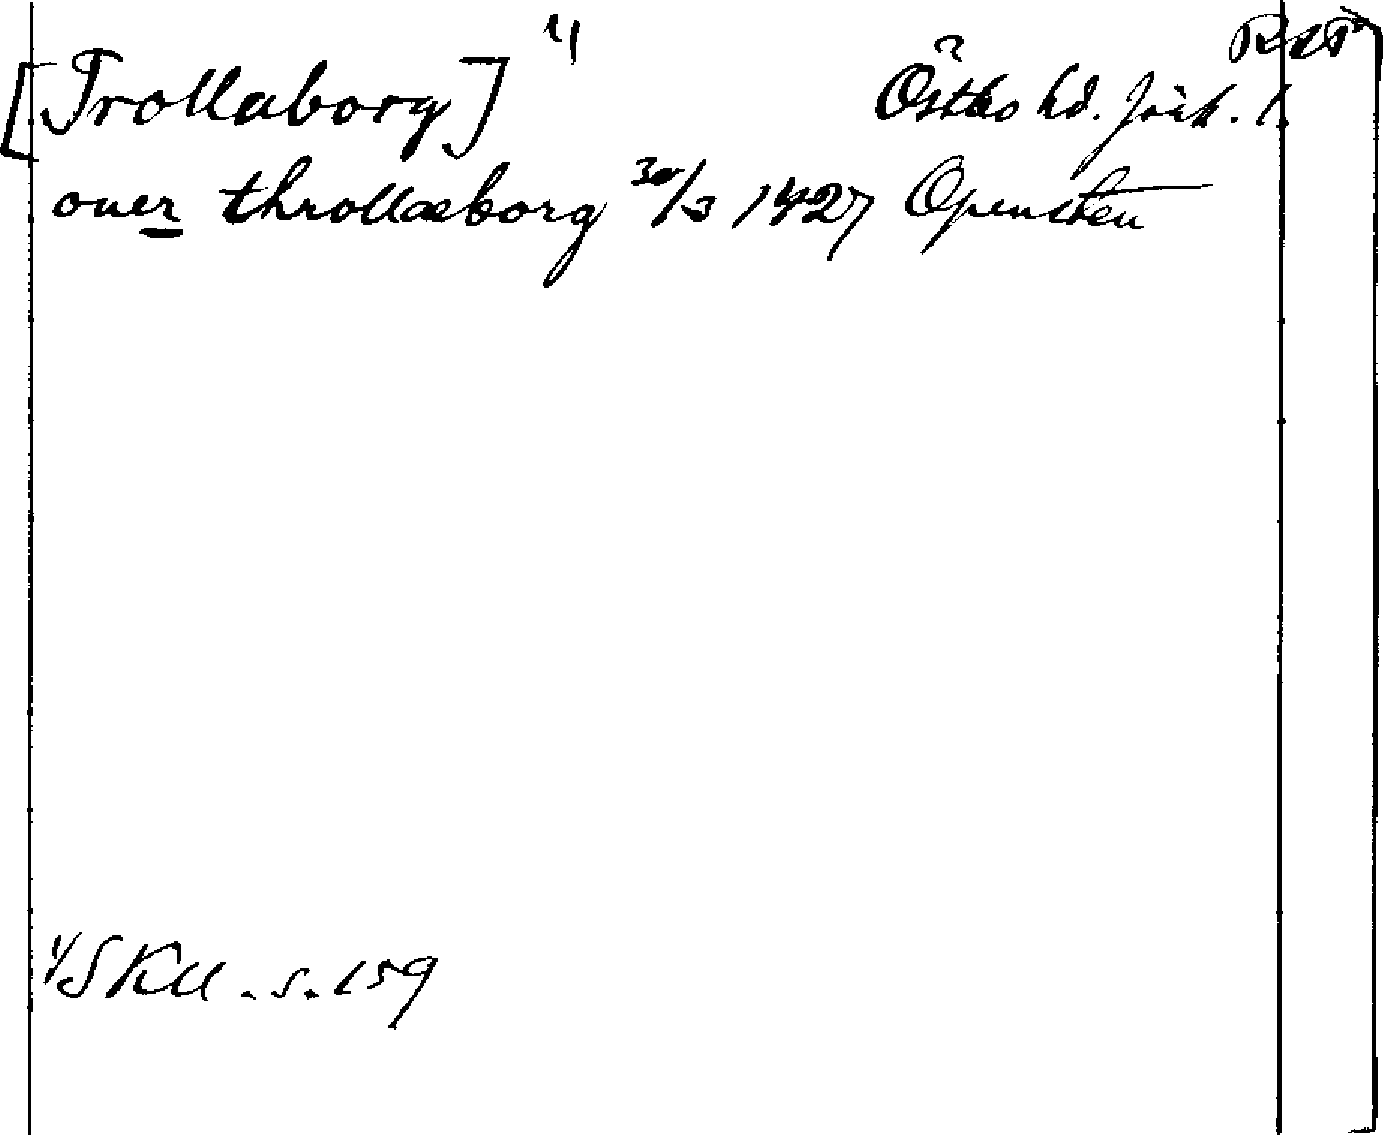 [Trollaborg] 1) ? Östbo hd. Jönk. l.
ouer throllæborg 30/3 1427 Opensten
1/ SKU . s. 159